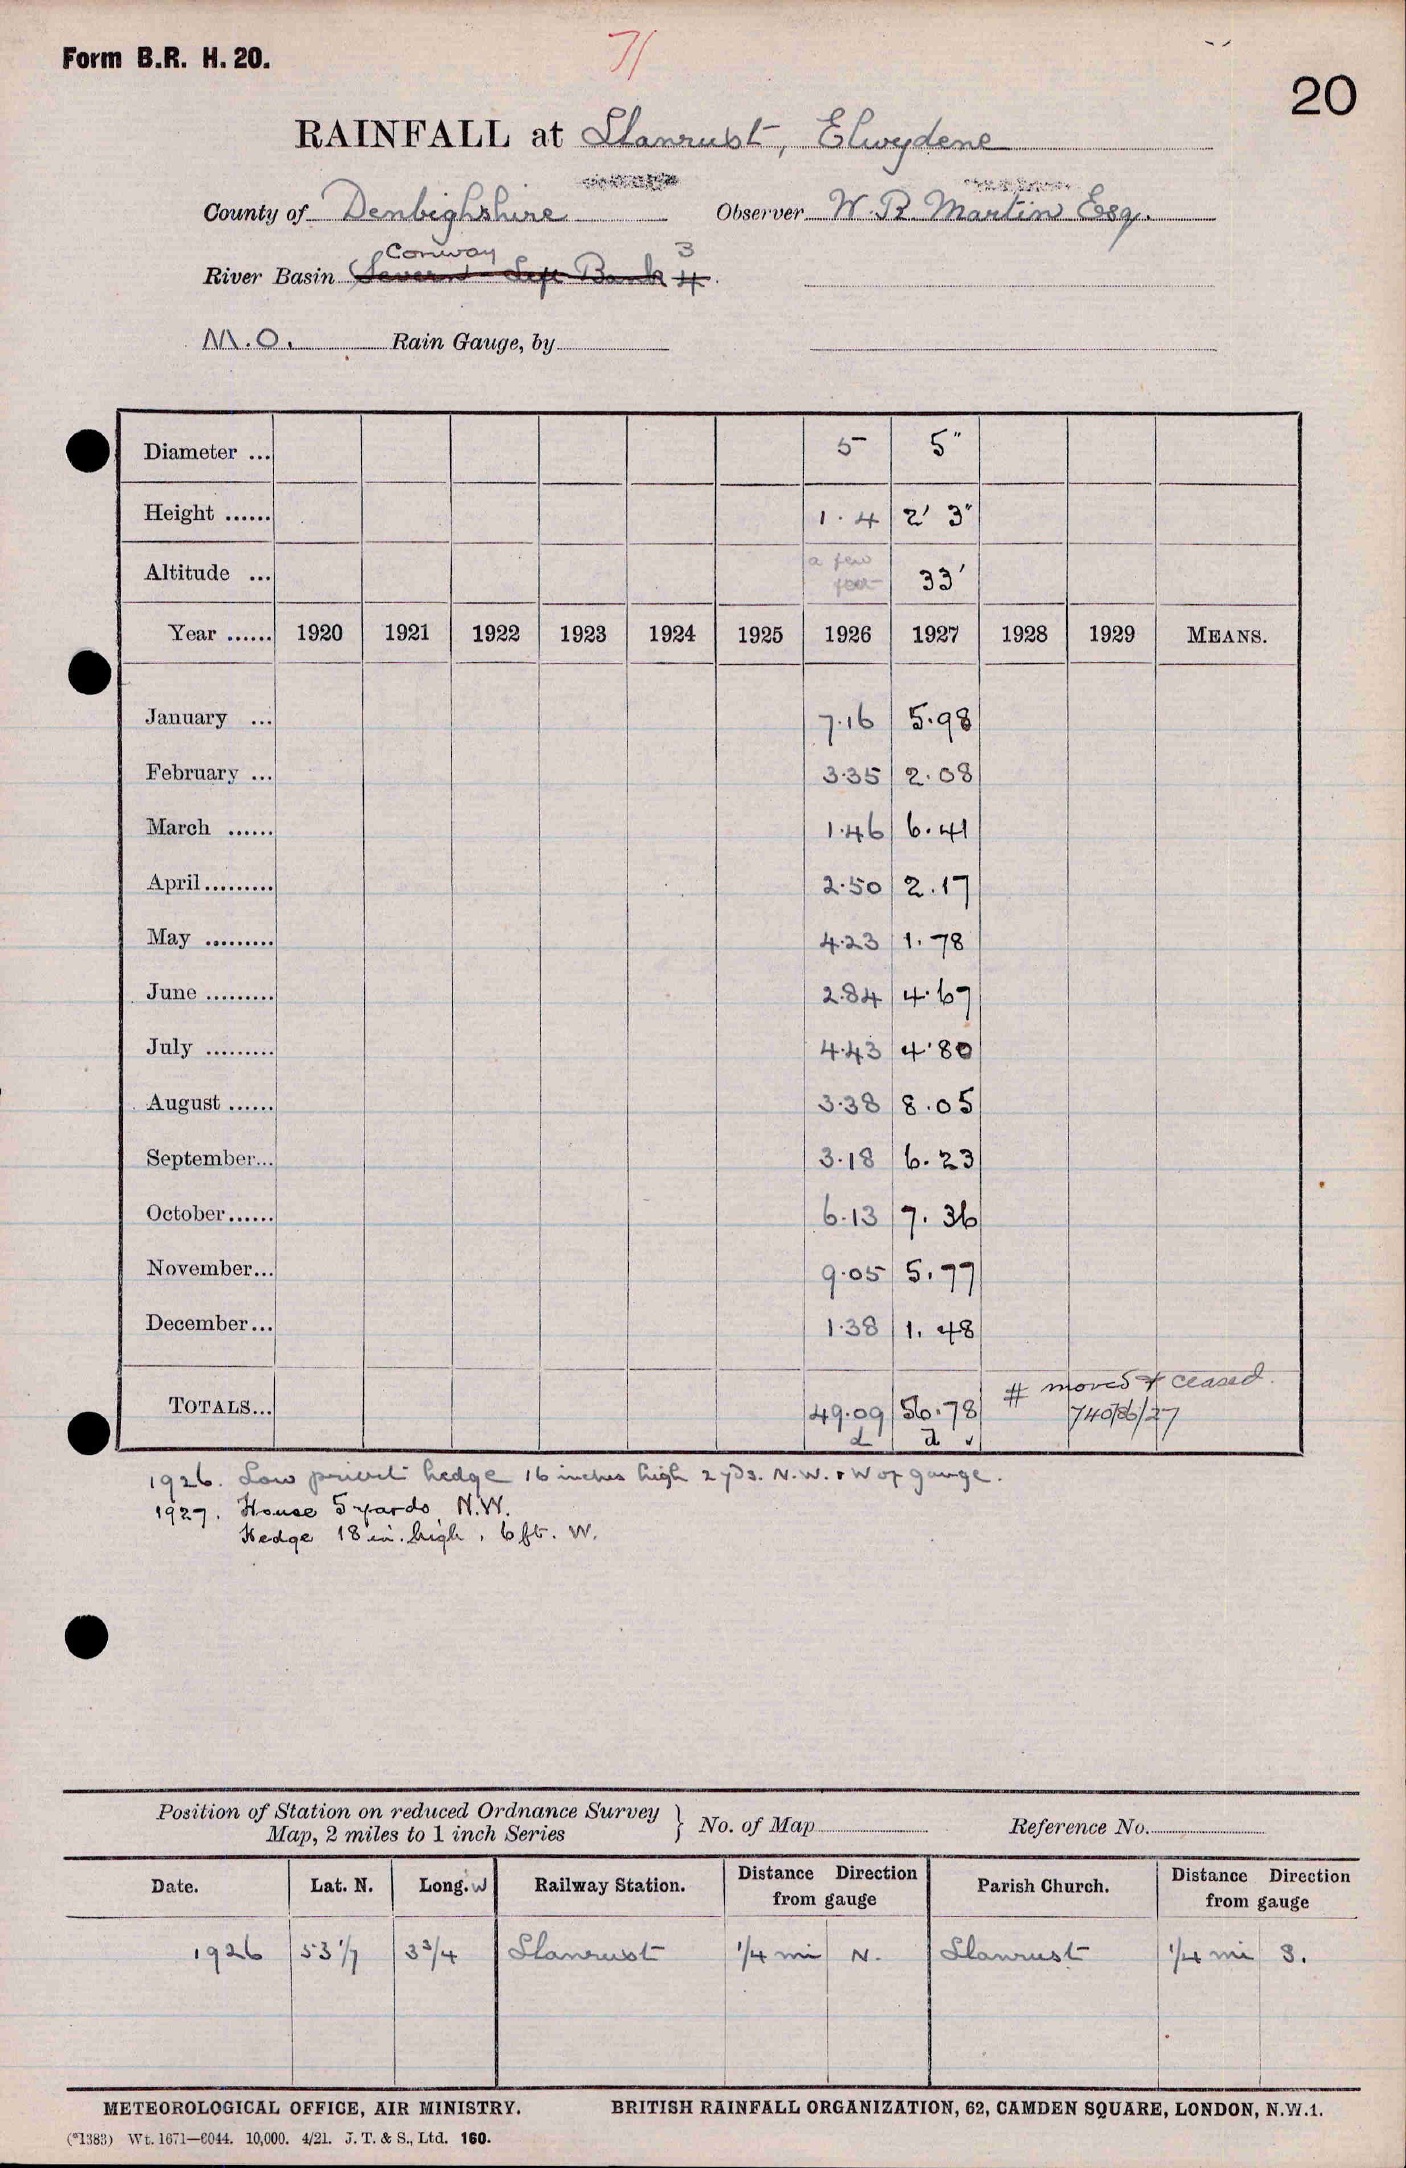 Form B.R. H. 20.
71
20
RAINFALL at Llanrwst, Elwydene
County of Denbighshire Observer W. R. Martin Esq.
Conway 3
River Basin Severn Left Bank 4
M.O. Rain Gauge, by
Diameter ... 5 5"
Height ...... 1.4 2' 3"
Altitude ... a few feet 33'
Year ...... 1920 1921 1922 1923 1924 1925 1926 1927 1928 1929 MEANS.
January ... 7.16 5.98
February ... 3.35 2.08
March ...... 1.46 6.41
April......... 2.50 2.17
May ......... 4.23 1.78
June ......... 2.84 4.67
July ......... 4.43 4.80
August ...... 3.38 8.05
September... 3.18 6.23
October...... 6.13 7.36
November... 9.05 5.77
December... 1.38 1.48
TOTALS... 49.09 56.78 # moved & ceased.
d d v 740/86/27
1926. Low privet hedge 16 inches high 2 yds. N.W. & W of gauge.
1927. House 5 yards N.W.
Hedge 18 in. high, 6 ft. W.
Position of Station on reduced Ordnance Survey
Map, 2 miles to 1 inch Series } No. of Map Reference No.
Date. Lat. N. Long. W Railway Station. Distance Direction from gauge Parish Church. Distance Direction from gauge
1926 53 1/7 3 3/4 Llanrwst 1/4 mi N. Llanrwst 1/4 mi S.
METEOROLOGICAL OFFICE, AIR MINISTRY. BRITISH RAINFALL ORGANIZATION, 62, CAMDEN SQUARE, LONDON, N.W.1.
(*1383) Wt. 1671—6044. 10,000. 4/21. J. T. & S., Ltd. 160.